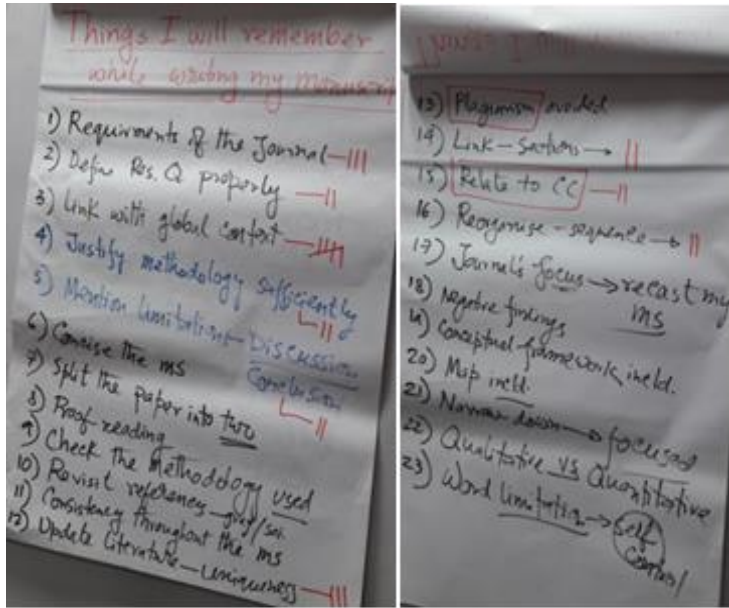 Things I will remember
while writing my manuscript
1) Requirments of the Journal - |||
2) Define Res. Q properly - ||
3) Link with global context - ||||
4) Justify methodology sufficiently
||
5) Mention limitation - Discussion
Conclusion
||
6) Concise the ms
7) Split the paper into two
8) Proof reading
9) Check the methodology used
10) Revisit references -
11) Consistency throughout the ms
12) Update literature - uniqueness - |||
Things I
13) Plagiarism avoided
14) Link - sections → ||
15) Relate to CC - ||
16) Reorganise - sequence → ||
17) Journal's focus → recast my
ms
18) Negative findings
19) Conceptual framework incld.
20) Map incld.
21) Narrow down → focused
22) Qualitative vs Quantitative
23) Word limitation → Self